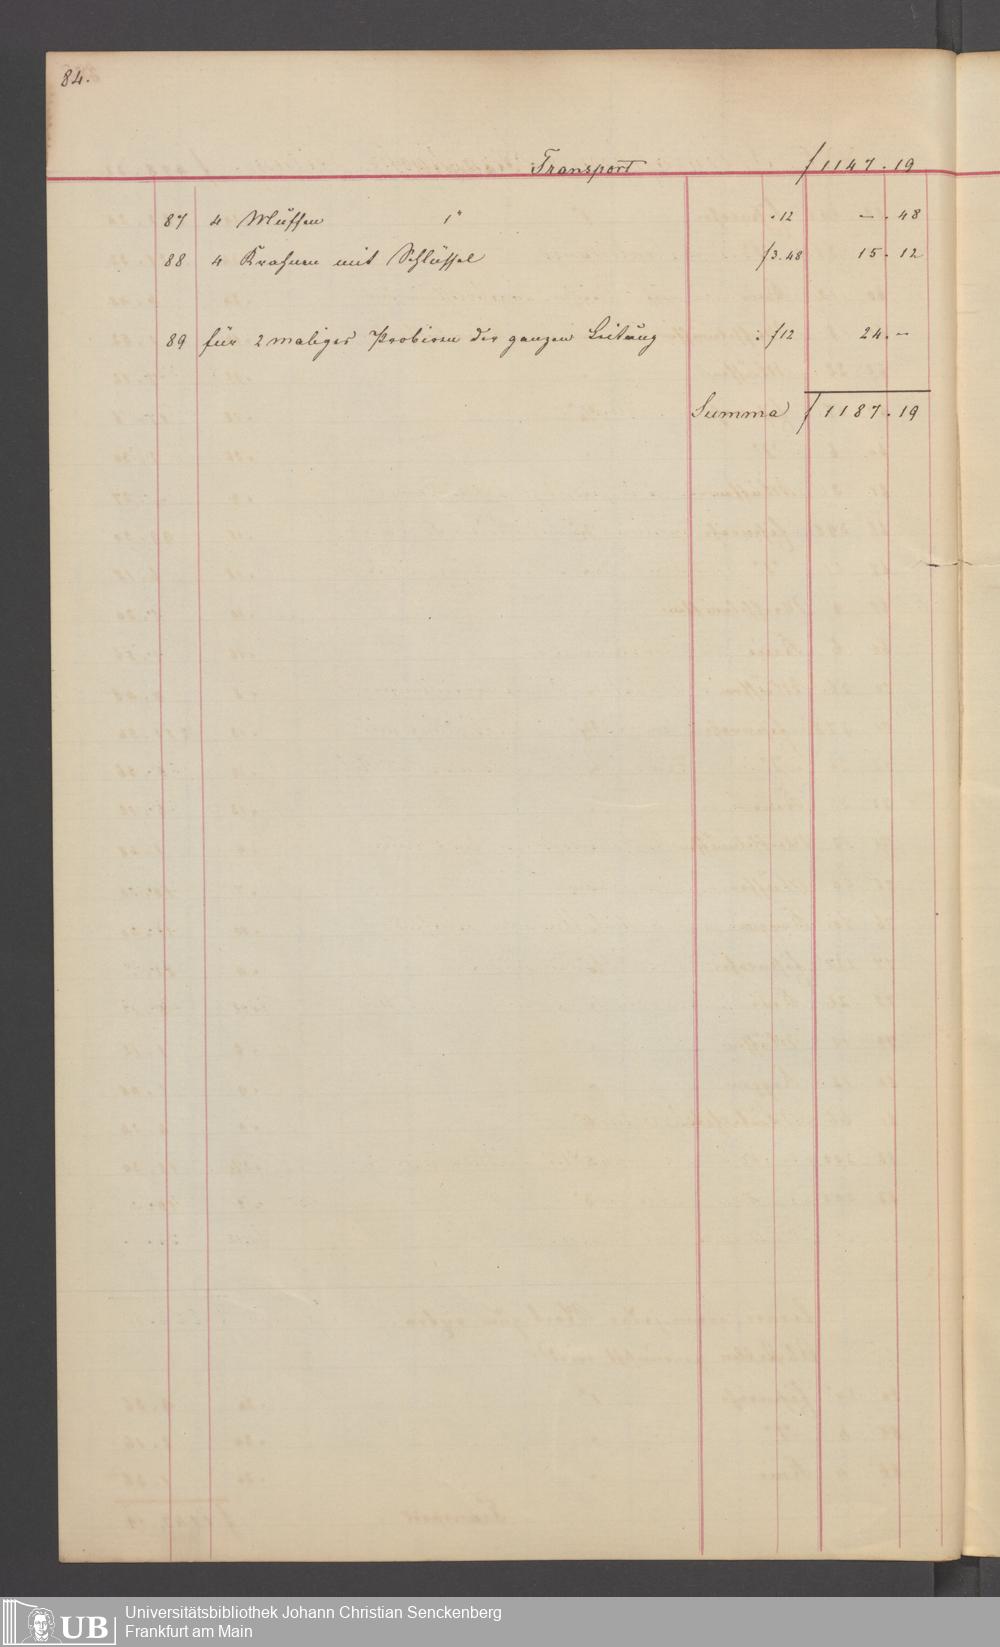 84.
Transport f 1147. 19
87 4 Muffen 1" . 12 - . 48
88 4 Krahnen mit Schlüssel f3. 48 15. 12
89 für 2 maliges Probiren der ganzen Leitung : f12 24. -
Summa f 1187. 19
UB Universitätsbibliothek Johann Christian Senckenberg
Frankfurt am Main